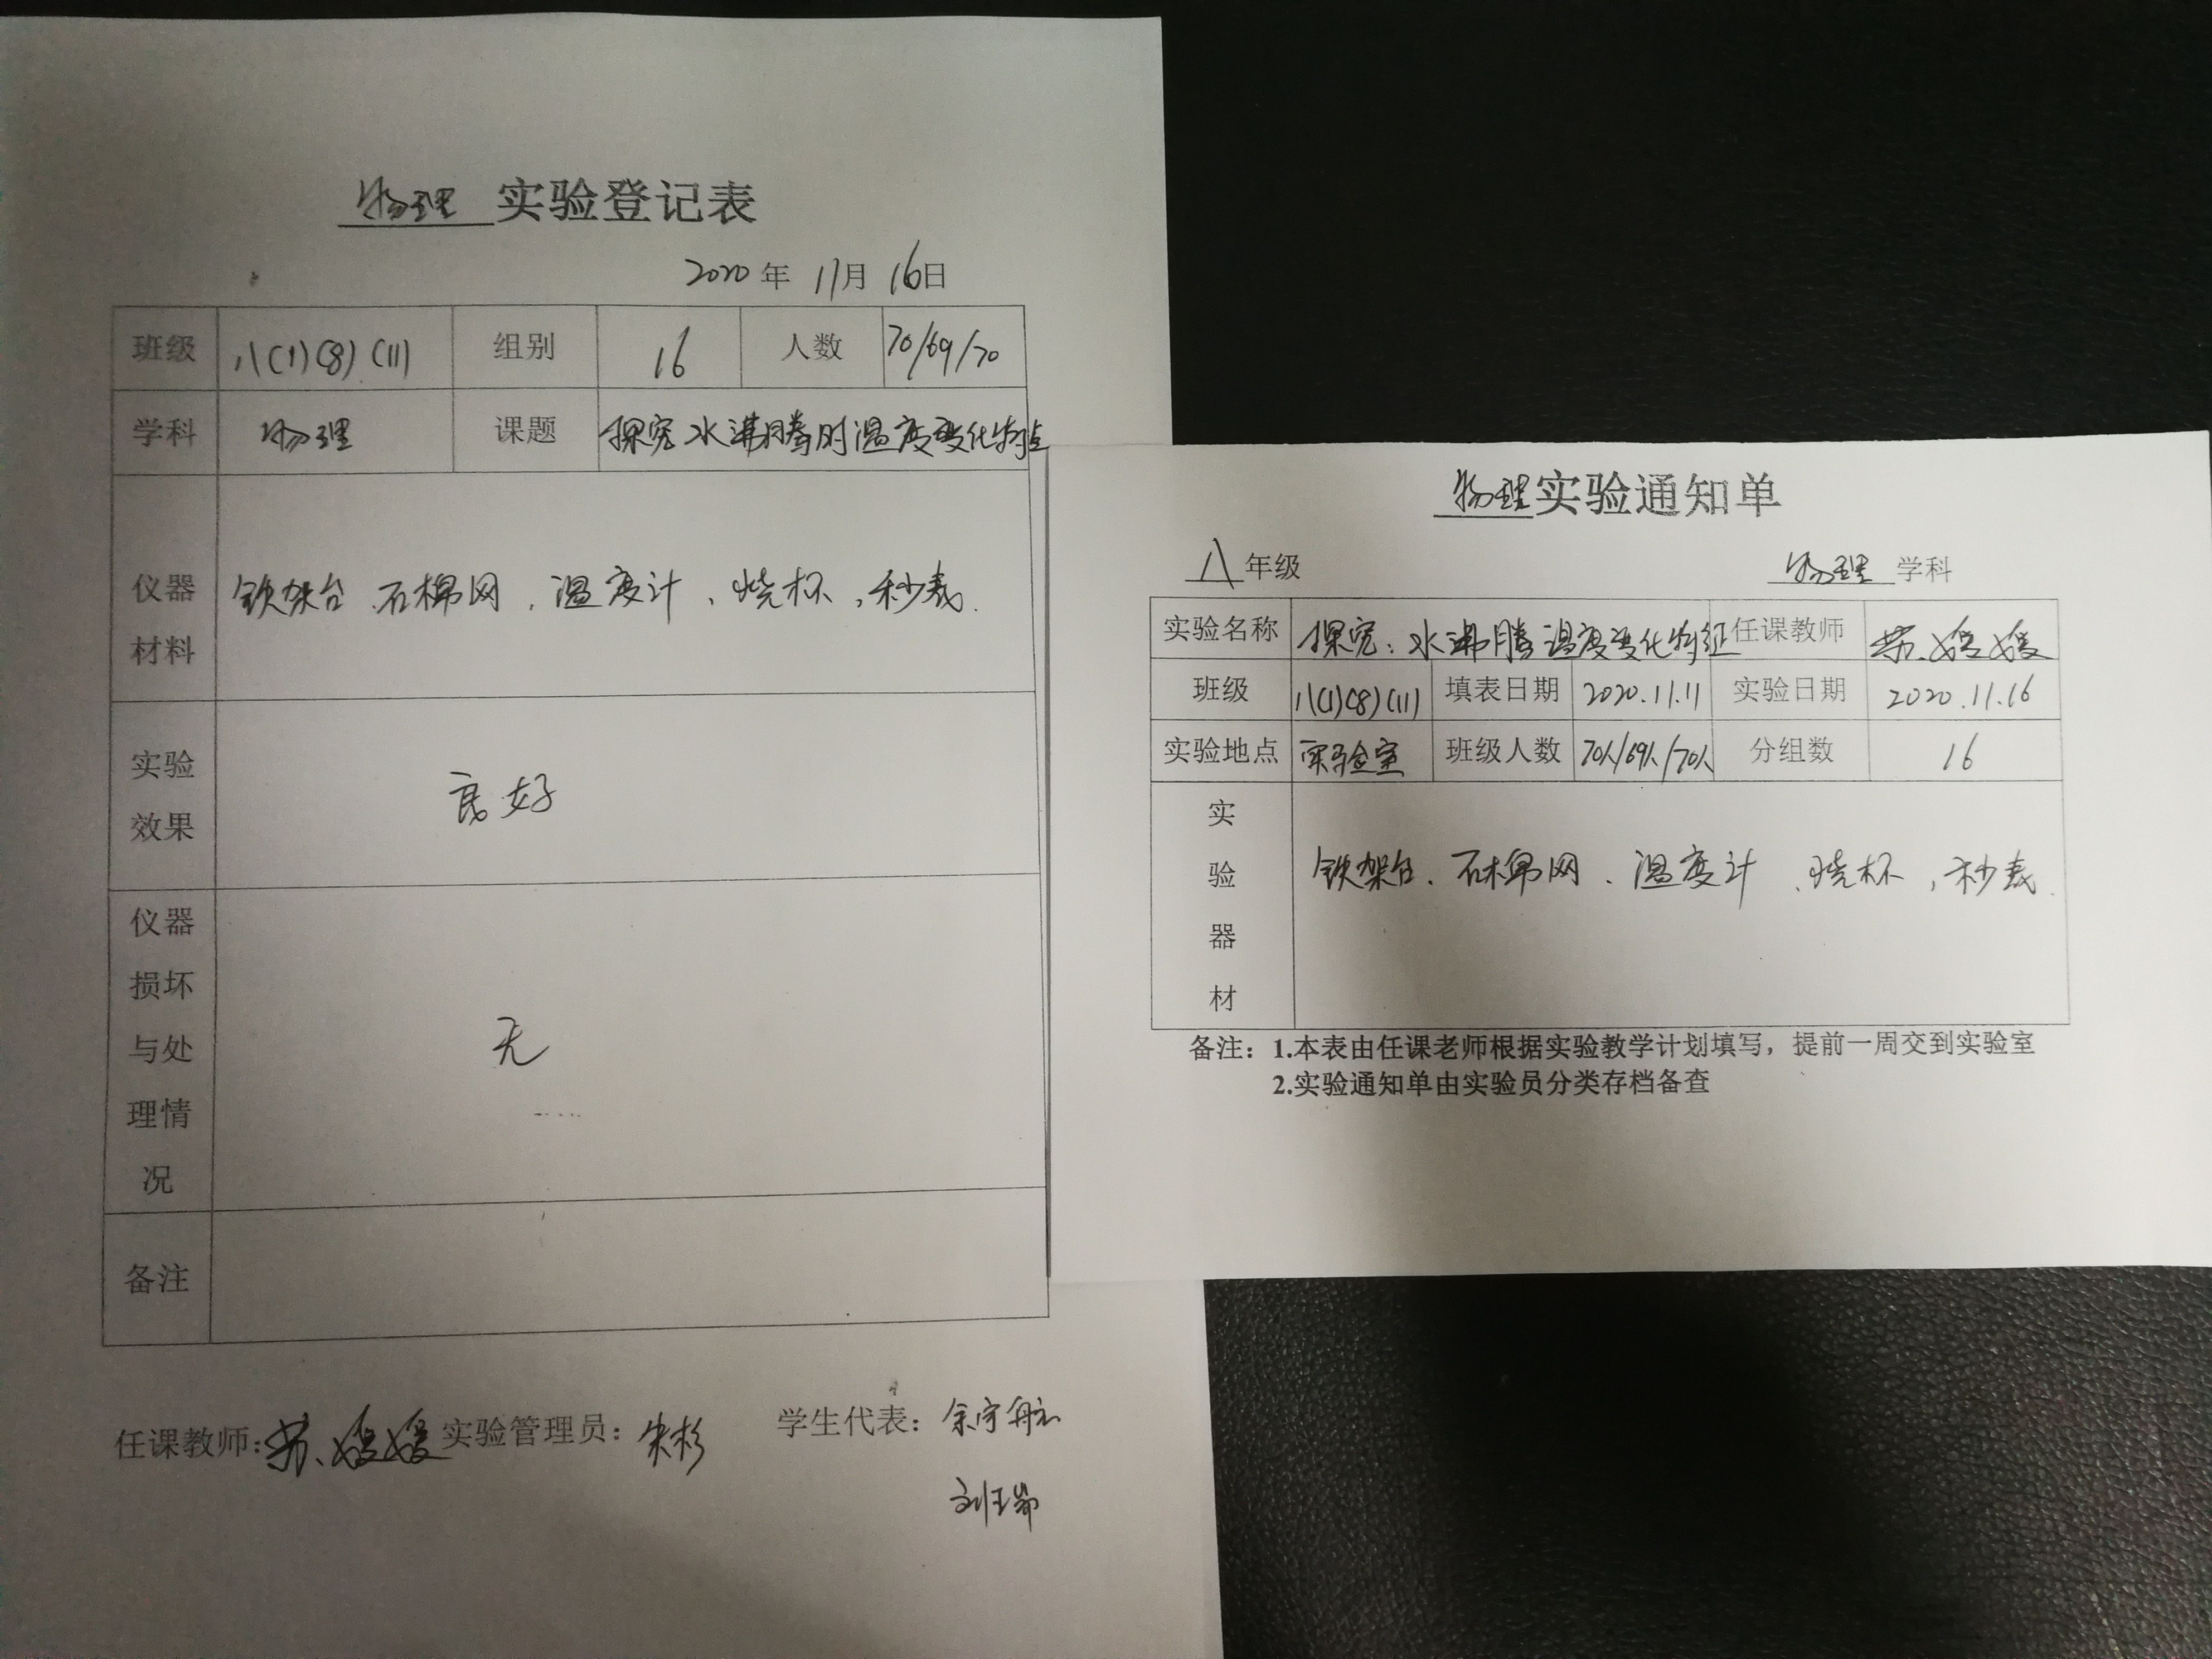 物理 实验登记表
2020 年 11月 16日
班级 八(1)(8)(11) 组别 16 人数 70/69/70
学科 物理 课题 探究水沸腾时温度变化特点
仪器材料 铁架台、石棉网、温度计、烧杯、秒表.
实验效果 良好
仪器损坏与处理情况 无
备注
任课教师: 苏媛媛 实验管理员: 朱杉 学生代表: 余宇航
物理实验通知单
八年级 物理 学科
实验名称 探究:水沸腾温度变化特征 任课教师 苏媛媛
班级 八(1)(8)(11) 填表日期 2020.11.11 实验日期 2020.11.16
实验地点 实验室 班级人数 70人/69人/70人 分组数 16
实验器材 铁架台、石棉网、温度计、烧杯,秒表.
备注:1.本表由任课老师根据实验教学计划填写,提前一周交到实验室
2.实验通知单由实验员分类存档备查